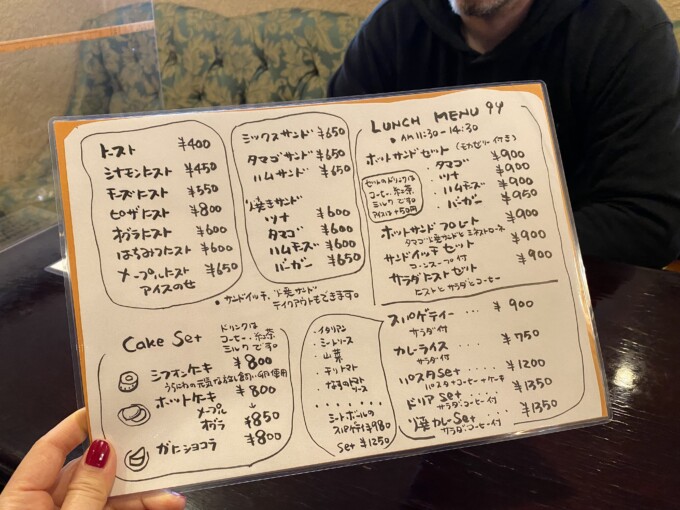 トースト ¥400
シナモントースト ¥450
チーズトースト ¥550
ピザトースト ¥800
オグラトースト ¥600
はちみつトースト ¥600
メープルトースト ¥650
アイスのせ
ミックスサンド ¥650
タマゴサンド ¥650
ハムサンド ¥650
焼きサンド
ツナ ¥600
タマゴ ¥600
ハムチーズ ¥600
バーガー ¥650
・サンドイッチ、焼サンド
テイクアウトもできます。
LUNCH MENU
・AM 11:30 - 14:30
ホットサンドセット (モカゼリー付き)
・タマゴ ¥900
・ツナ ¥900
・ハムチーズ ¥900
・バーガー ¥950
セットのドリンクは
コーヒー、紅茶
ミルクです
アイスは+50円
ホットサンドプレート ¥900
タマゴ焼サンドとミネストローネ
サンドイッチセット ¥900
コーンスープ付
サラダトーストセット ¥900
トーストとサラダとコーヒー
Cake Set
ドリンクは
コーヒー、紅茶
ミルクです。
シフォンケーキ ¥800
ホットケーキ ¥800
メープル
オグラ ¥850
がとーショコラ ¥800
・イタリアン
・ミートソース
・山菜
・チリトマト
・なすのトマト
ソース
ミートボールの
スパゲティは980
Set ¥1250
スパゲティー ・・・ ¥900
サラダ付
カレーライス ・・・ ¥750
サラダ付
パスタSet ・・・ ¥1200
パスタ+コーヒー+ケーキ
ドリアSet ・・・ ¥1350
サラダ・コーヒー付
焼カレーSet ・・・ ¥1350
サラダ・コーヒー付